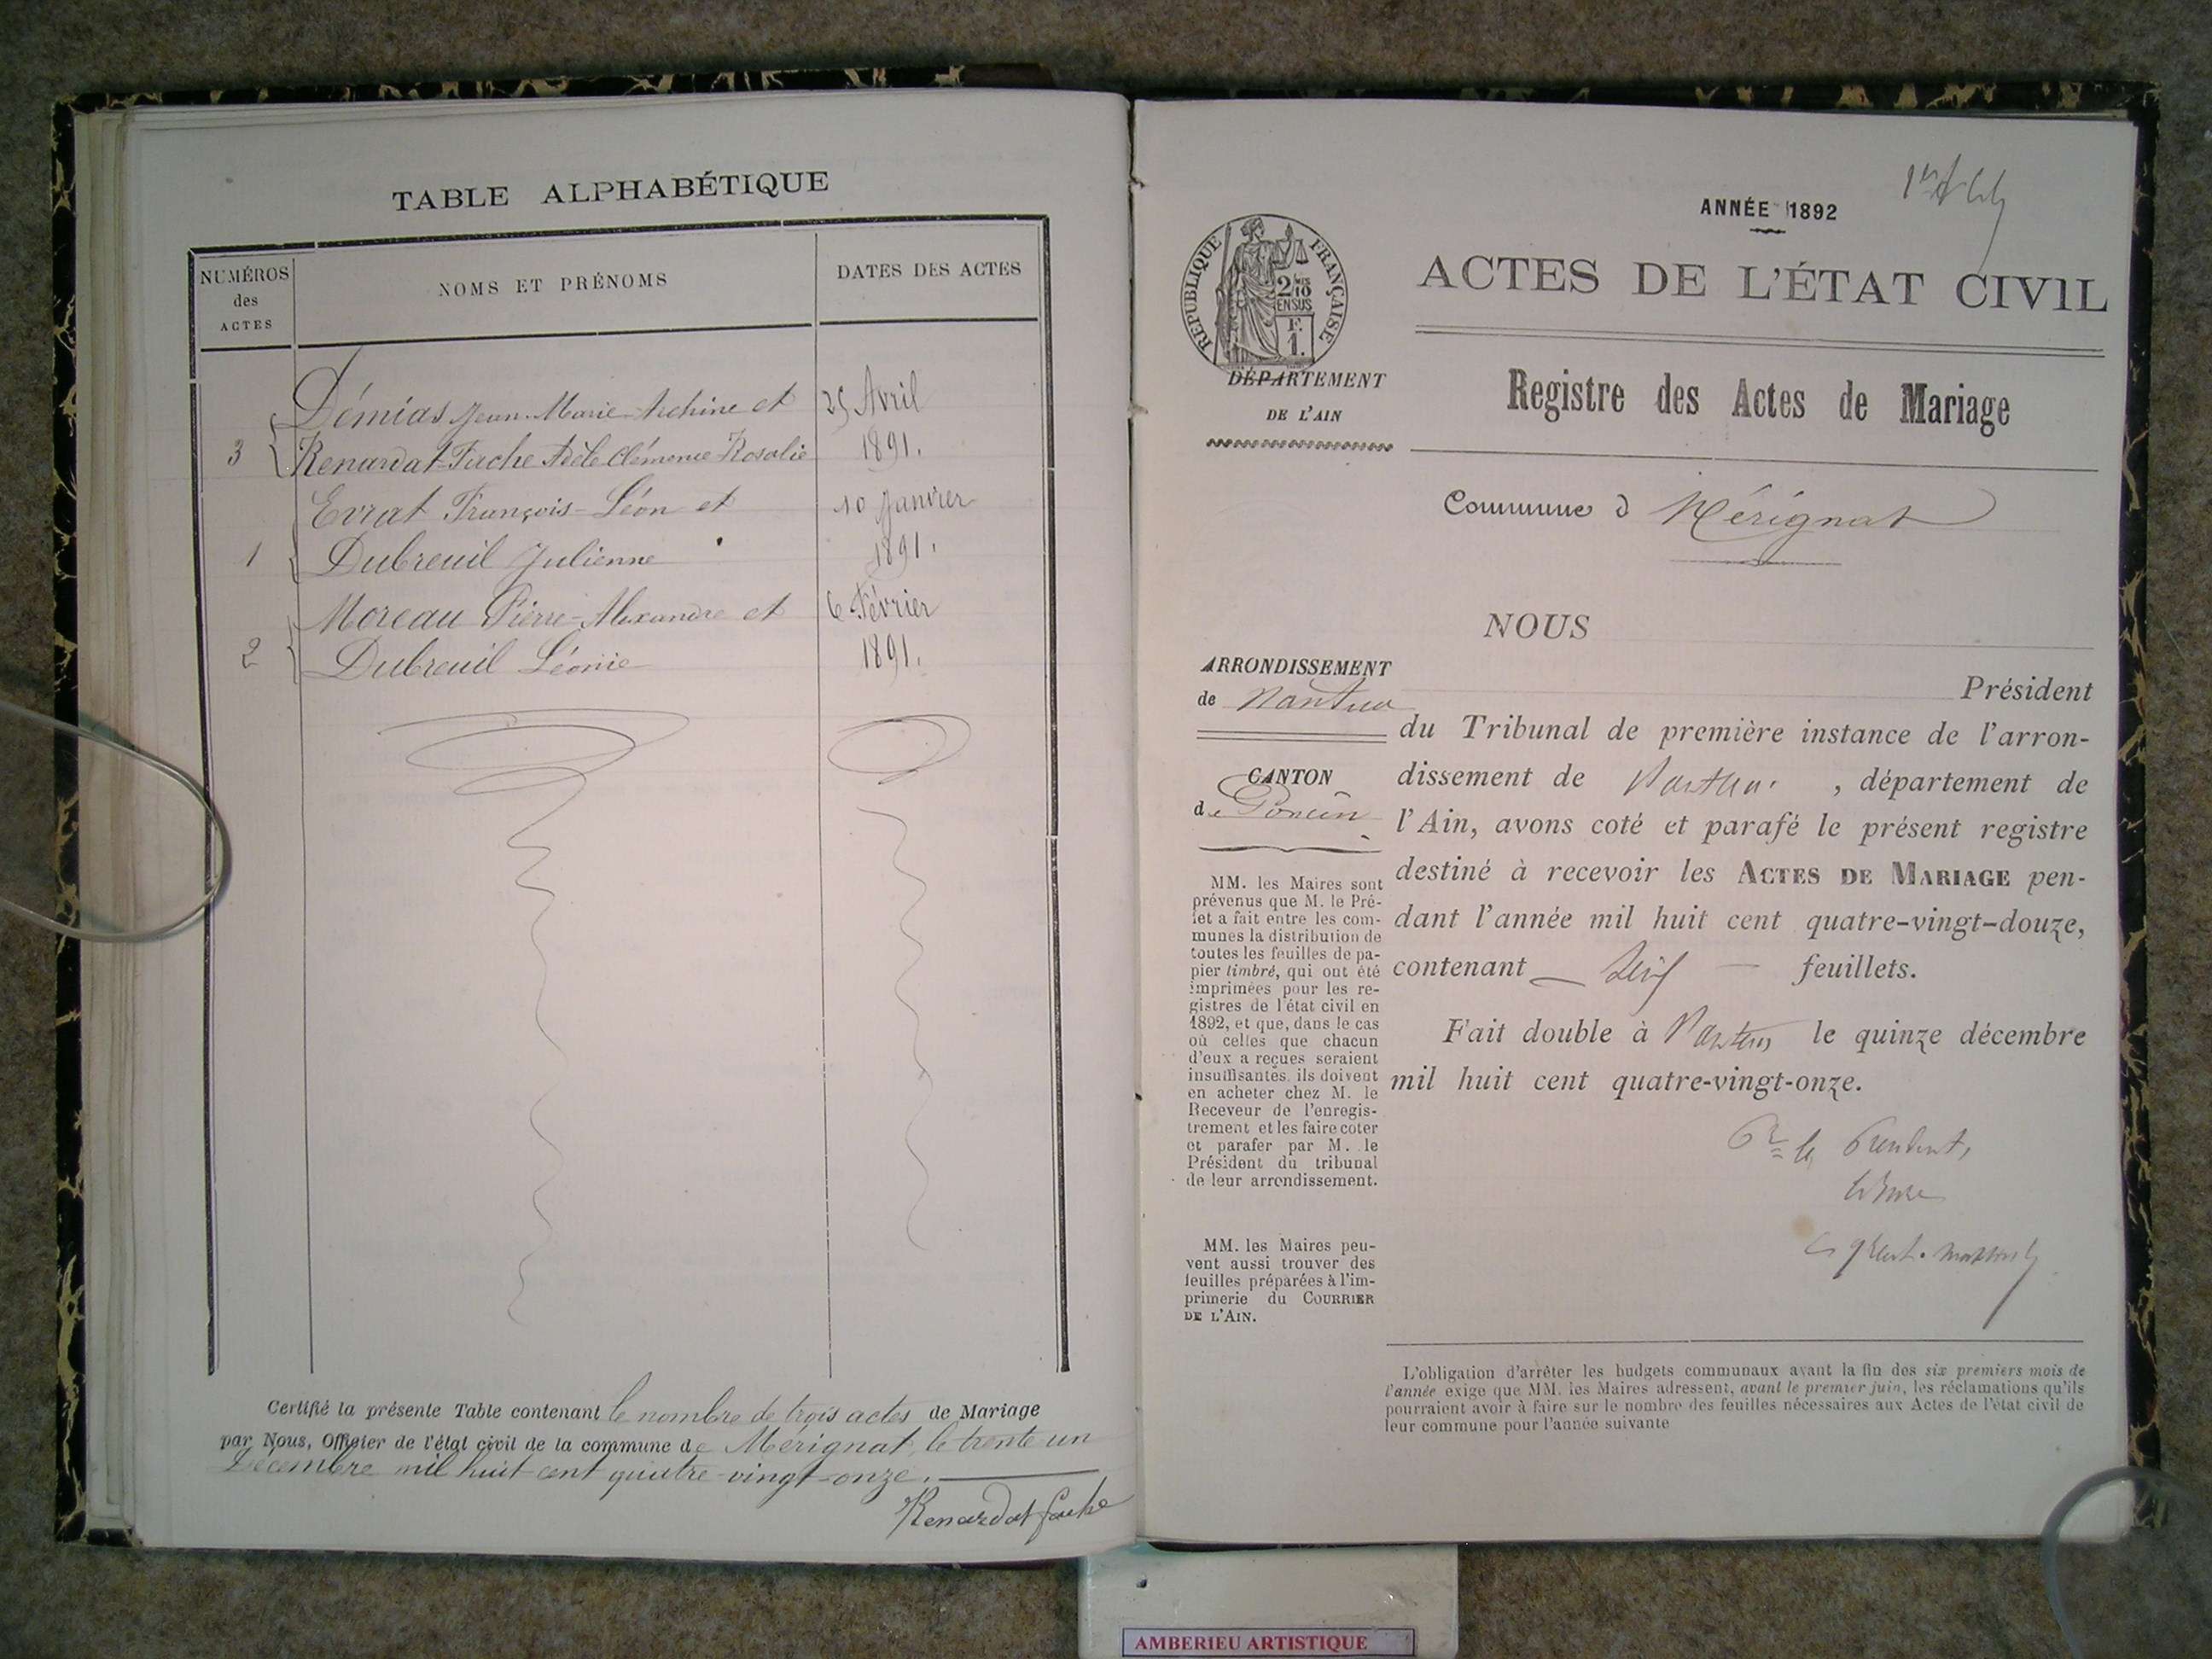 TABLE ALPHABÉTIQUE
NUMÉROS
des
ACTES
NOMS ET PRÉNOMS
DATES DES ACTES
Démias Jean-Marie et
25 Avril
3
Renardat-Fache Adèle Clémence Rosalie
1891.
Evrat François-Léon et
10 Janvier
1
Dubreuil Julienne
1891.
Moreau Pierre-Alexandre et
6 Février
2
Dubreuil Léonie
1891.
Certifié la présente Table contenant le nombre de trois actes de Mariage
par Nous, Officier de l'état civil de la commune de Mérignat, le trente un
Décembre mil huit cent quatre-vingt-onze.
Renardat fache
ANNÉE 1892
RÉPUBLIQUE FRANÇAISE
2/10
EN SUS
F.
1.
ACTES DE L'ÉTAT CIVIL
DÉPARTEMENT
DE L'AIN
Registre des Actes de Mariage
Commune d Mérignat
NOUS
ARRONDISSEMENT
de Nantua
CANTON
de Poncin
MM. les Maires sont
prévenus que M. le Pré-
fet a fait entre les com-
munes la distribution de
toutes les feuilles de pa-
pier timbré, qui ont été
imprimées pour les re-
gistres de l'état civil en
1892, et que, dans le cas
où celles que chacun
d'eux a reçues seraient
insuffisantes, ils doivent
en acheter chez M. le
Receveur de l'enregis-
trement et les faire coter
et parafer par M. le
Président du tribunal
de leur arrondissement.
MM. les Maires peu-
vent aussi trouver des
feuilles préparées à l'im-
primerie du COURRIER
DE L'AIN.
Président
du Tribunal de première instance de l'arron-
dissement de Nantua, département de
l'Ain, avons coté et parafé le présent registre
destiné à recevoir les ACTES DE MARIAGE pen-
dant l'année mil huit cent quatre-vingt-douze,
contenant feuillets.
Fait double à Nantua le quinze décembre
mil huit cent quatre-vingt-onze.
Pr le Président,
L'obligation d'arrêter les budgets communaux avant la fin des six premiers mois de
l'année exige que MM. les Maires adressent, avant le premier juin, les réclamations qu'ils
pourraient avoir à faire sur le nombre des feuilles nécessaires aux Actes de l'état civil de
leur commune pour l'année suivante
AMBERIEU ARTISTIQUE